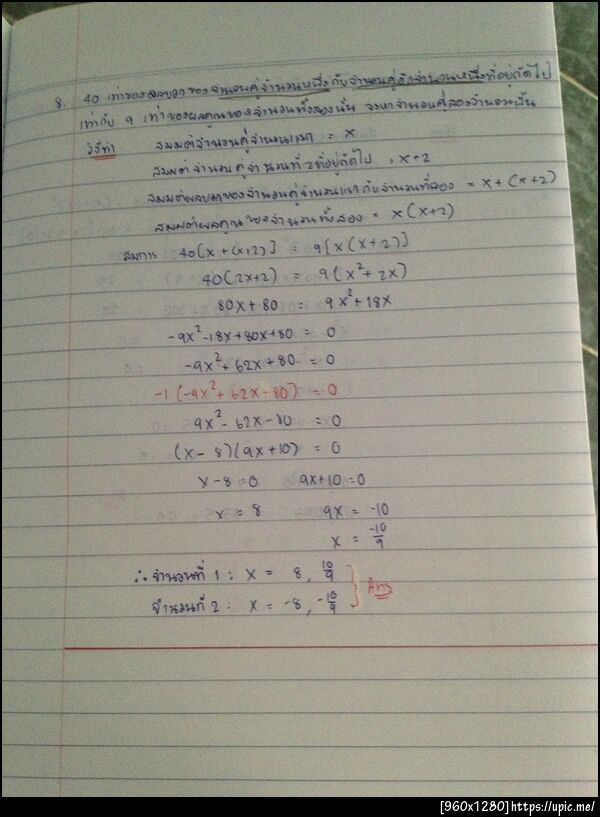 8. 40 เท่าของผลบวกของจำนวนคู่จำนวนหนึ่งกับจำนวนคู่อีกจำนวนหนึ่งที่อยู่ถัดไป
เท่ากับ 9 เท่าของผลคูณของจำนวนทั้งสองนั้น จงหาจำนวนคู่สองจำนวนนั้น
วิธีทำ สมมติจำนวนคู่จำนวนแรก = x
สมมติจำนวนคู่จำนวนที่ 2 ที่อยู่ถัดไป = x+2
สมมติผลบวกของจำนวนคู่จำนวนแรกกับจำนวนที่สอง = x + (x+2)
สมมติผลคูณของจำนวนทั้งสอง = x(x+2)
สมการ 40[x + (x+2)] = 9[x(x+2)]
40(2x+2) = 9(x²+2x)
80x+80 = 9x²+18x
-9x²-18x+80x+80 = 0
-9x²+62x+80 = 0
-1(-9x²+62x+80) = 0
9x²-62x-80 = 0
(x-8)(9x+10) = 0
x-8=0 9x+10=0
x = 8 9x = -10
x = -10/9
∴ จำนวนที่ 1 : x = 8, 10/9
จำนวนที่ 2 : x = -8, -10/9
Ans
[960x1280]https://upic.me/